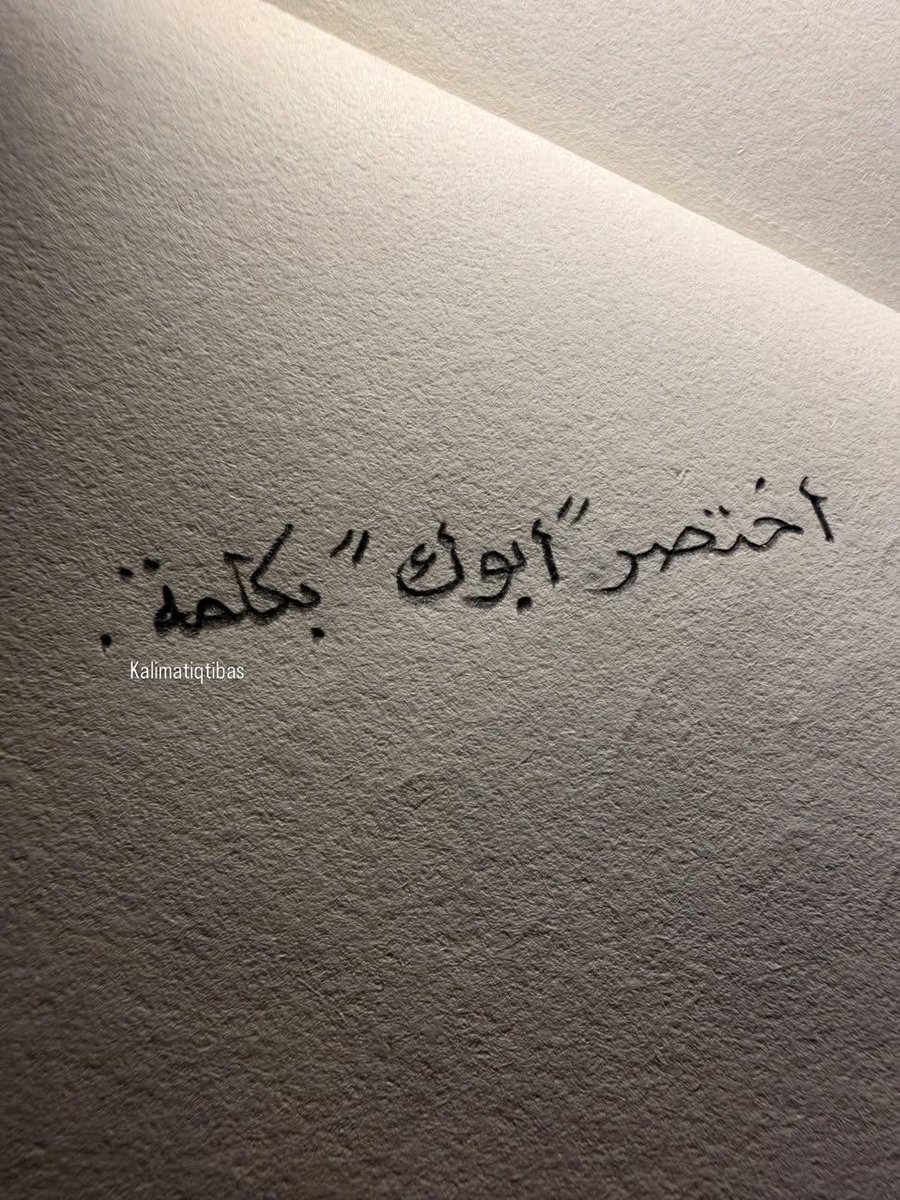 اختصر "ابوك" بكلمة.
Kalimatiqtibas